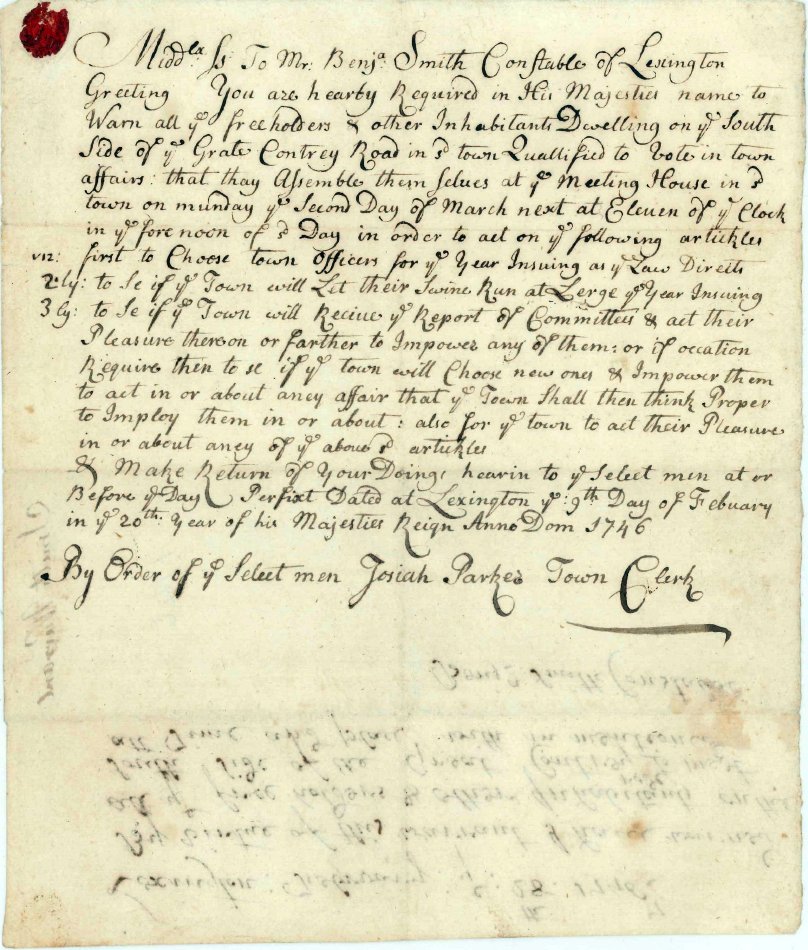 Midd:ˡˣ Ss To Mr: Benjª. Smith Constable of Lexington
Greeting You are hearby Required in His Majesties name to
Warn all yͤ freeholders & other Inhabitants Dwelling on yͤ South
Side of yͤ Grate Contrey Road in sᵈ town Quallifised to Vote in town
affairs: that thay Assemble them selves at yͤ Meeting House in sᵈ
town on munday yͤ Second Day of March next at Eleven of yͤ Clock
in yͤ fore noon of sᵈ Day in order to act on yͤ following artickles
viz: first to Choose town Officers for yͤ Year Insuing as yͤ Law Direits
2ly: to Se if yͤ Town will Let their Swine Run at Lerge yͤ Year Insuing
3ly: to Se if yͤ Town will Recive yͤ Report of Committees & act their
Pleasure thereon or farther to Impower any of them: or if occation
Require then to se if yͤ town will Choose new ones & Impower them
to act in or about aney affair that yͤ Town Shall then think Proper
to Imploy them in or about: also for yͤ town to act their Pleasure
in or about aney of yͤ above sᵈ artickles
& Make Return of Your Doings hearin to yͤ Select men at or
Before yͤ Day Perfixt Dated at Lexington yͤ: 9th Day of Febuary
in yͤ 20th: Year of his Majesties Reign Anno Dom 1746
By Order of yͤ Select men Josiah Parker Town Clerk